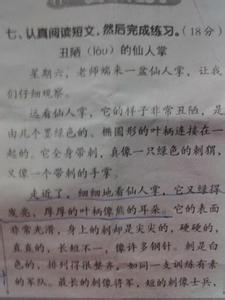 七、认真阅读短文，然后完成练习。(18分)
丑陋（lòu）的仙人掌
星期六，老师端来一盆仙人掌，让我
们仔细观察。
远看仙人掌，它的样子非常丑陋，是
由几个墨绿色的、椭圆形的叶柄连接在一
起的。它全身带刺，真像一只绿色的刺猬，
又像一个带刺的手掌。
走近了，细细地看仙人掌，它又绿得
发亮，厚厚的叶柄像熊的耳朵。它的表面
非常光滑，身上的刺却是尖尖的，硬硬的，
直直的，长短不一，像许多钢针。刺是白
色的，排列得很整齐，如同一支训练有素
的军队。最长的刺像将军，短的刺像士兵，